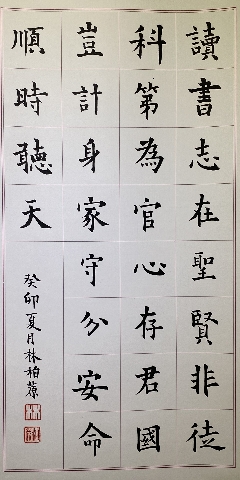 讀書志在聖賢非徒
科第為官心存君國
豈計身家守分安命
順時聽天
癸卯夏月林柏